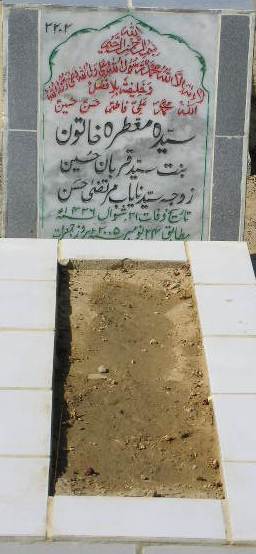 ۳۲۰۲
بسم اللہ الرحمن الرحیم
لا الہ الا اللہ محمد رسول اللہ علی ولی اللہ وصی رسول اللہ
و خلیفتہ بلا فصل
اللہ محمد علی فاطمہ حسن حسین
سیدہ معطرہ خاتون
بنت سید قربان حسین
زوجہ سید نایاب مرتضیٰ حسن
تاریخ وفات ۲۱ شوال ۱۴۲۶ھ
مطابق ۲۴ نومبر ۲۰۰۵ء بروز جمعرات